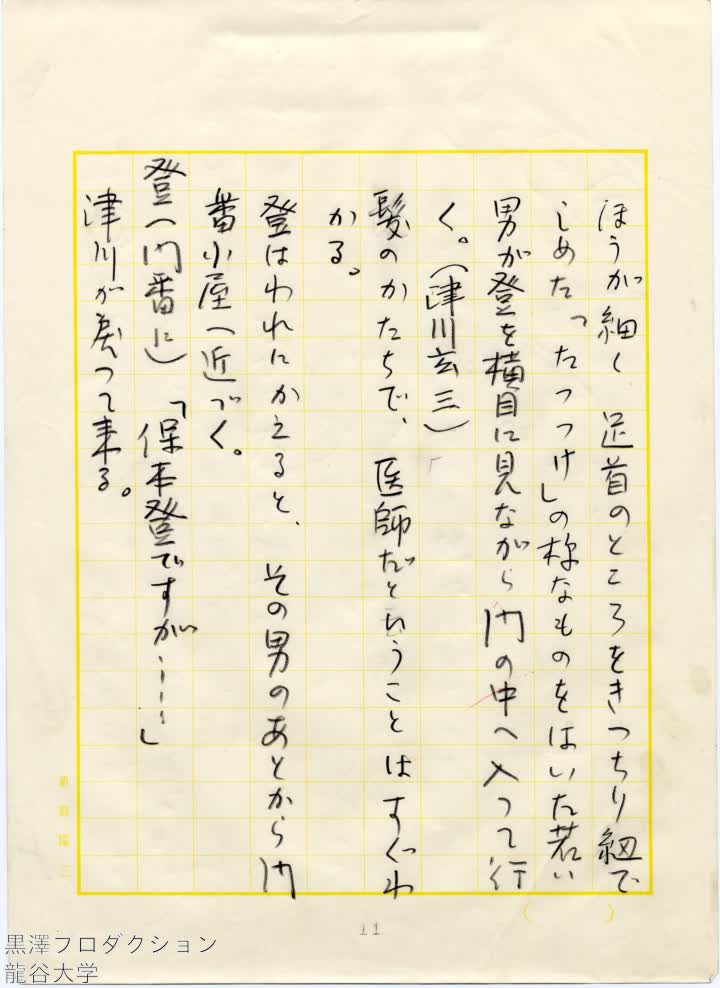 ほうが細く　足首のところをきっちり紐で
しめた「たっつけ」の様なものをはいた若い
男が登を横目に見ながら門の中へ入って行
く。（津川玄三）
髪のかたちで、医師だということはすぐわ
かる。
登はわれにかえると、その男のあとから門
番小屋へ近づく。
登（門番に）「保本登ですが……」
津川が戻って来る。
11
黒澤プロダクション
龍谷大学